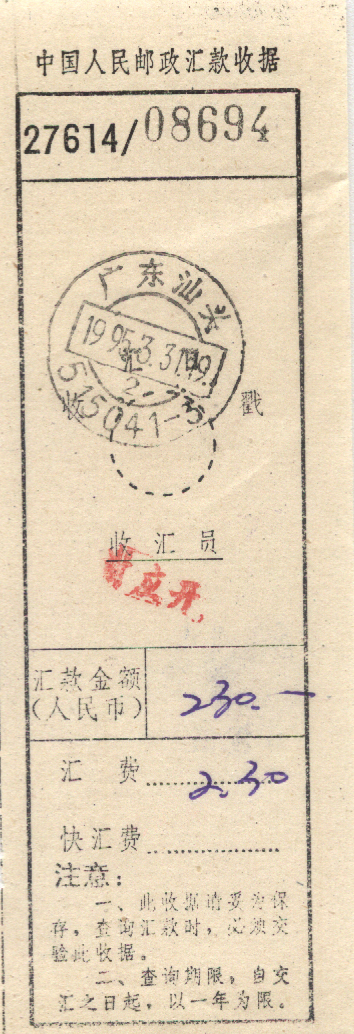 中国人民邮政汇款收据
27614/08694
广东汕头
1995.3.31.19
515041-3
收汇戳
收汇员
应开
汇款金额
(人民币)
230.-
汇费 2.30
快汇费
注意:
一、此收据请妥为保
存,查询汇款时,必须交
验此收据。
二、查询期限,自交
汇之日起,以一年为限。